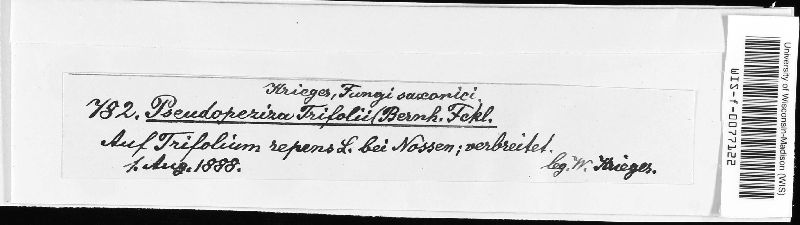 Krieger, Fungi saxonici.
782. Pseudopeziza Trifolii (Bernh. Fckl.
Auf Trifolium repens L. bei Nossen; verbreitet.
1. Aug. 1888. leg. W. Krieger.
University of Wisconsin-Madison (WIS)
WIS-f-0077122